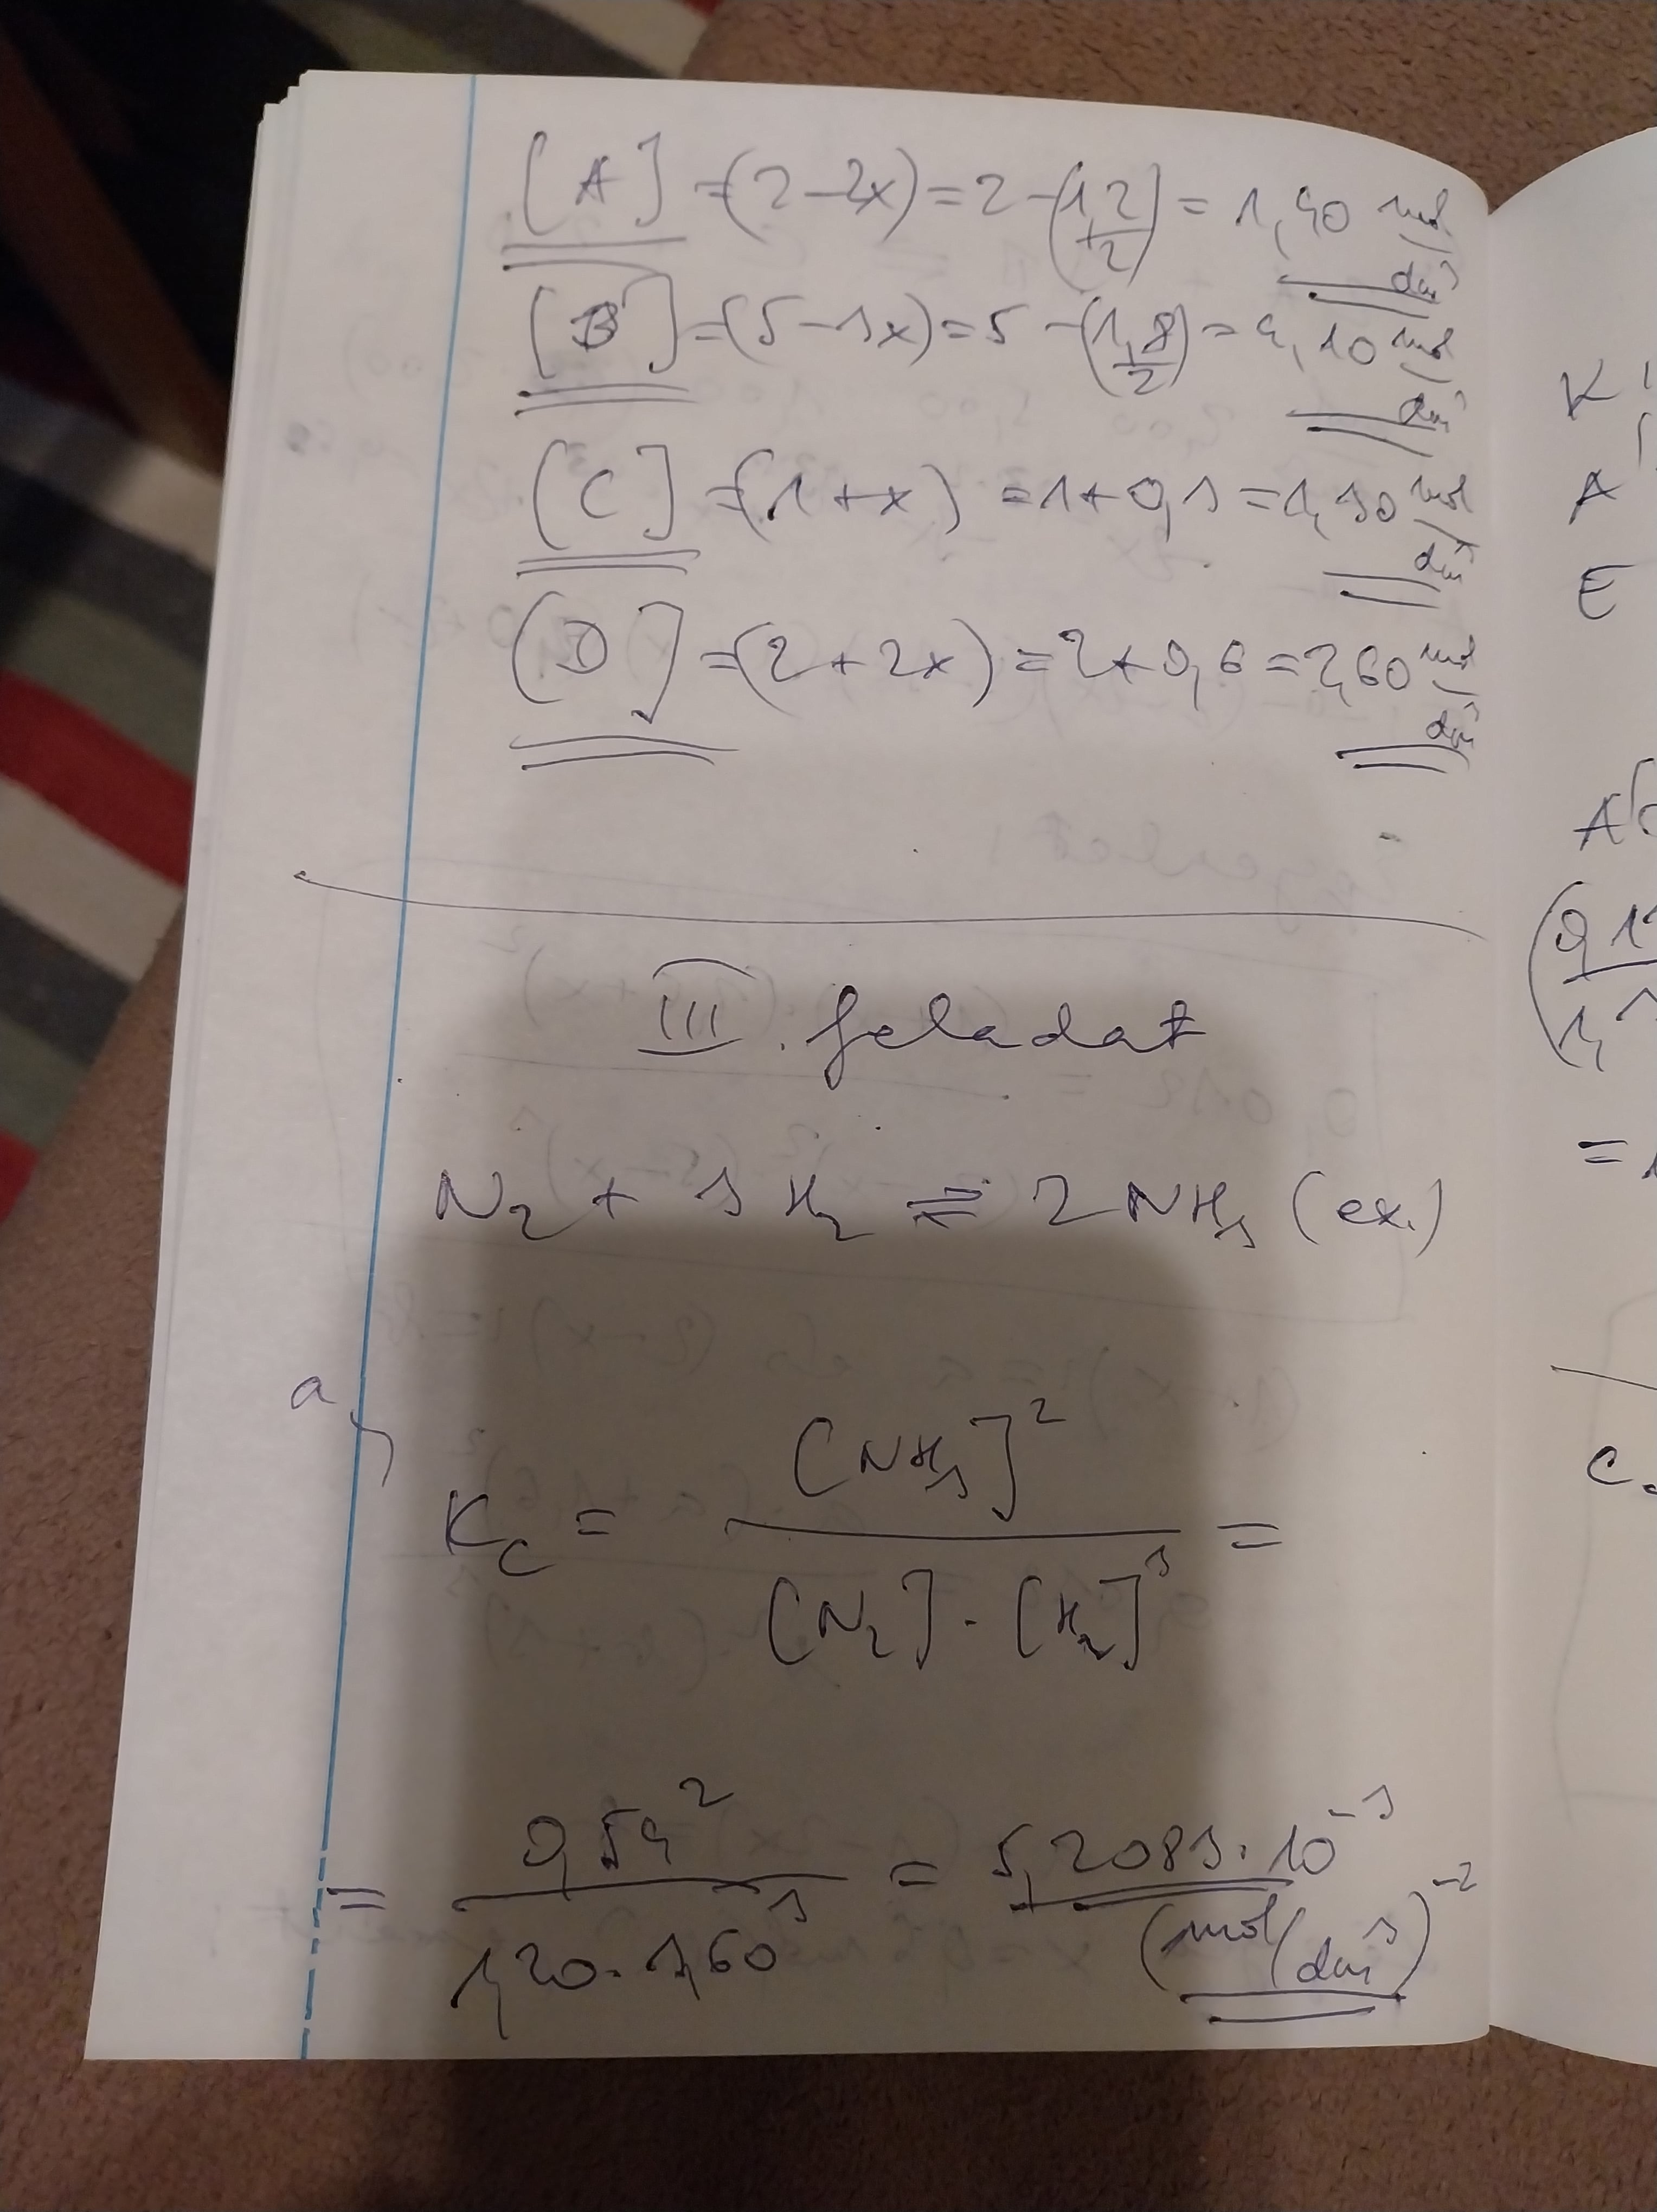 [A] = (2-2x) = 2-(1,2/2) = 1,40 mol/dm³
[B] = (5-3x) = 5-(1,8/2) = 4,10 mol/dm³
[C] = (1+x) = 1+0,3 = 1,30 mol/dm³
[D] = (2+2x) = 2+0,6 = 2,60 mol/dm³
III. feladat
N₂ + 3 H₂ ⇌ 2 NH₃ (ex.)
a,
K_C = [NH₃]² / [N₂]·[H₂]³ =
= 0,54² / 1,20·3,60³ = 5,2083·10⁻³ (mol/dm³)⁻²
K
A
E
A
=
C